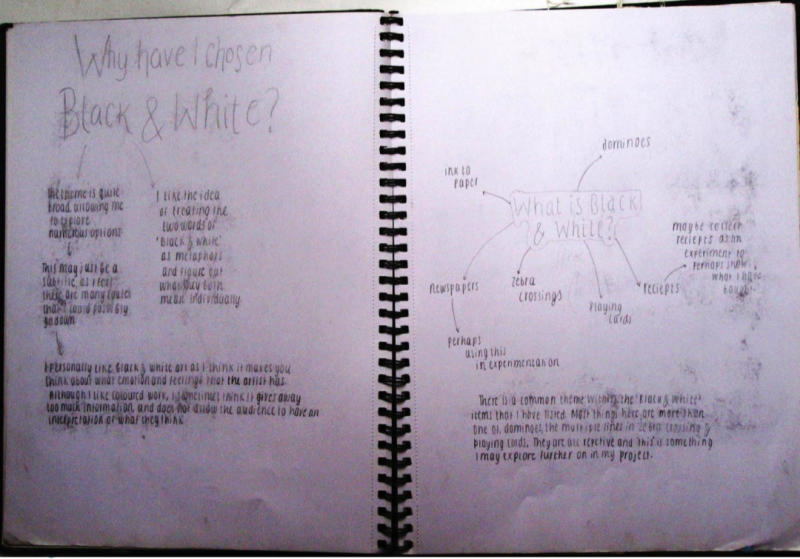 Why have I chosen
Black & White?
The theme is quite
broad allowing me
to explore
numerous options
This may just be a
subtitle as i feel
there are many routes
that i could possibly
go down
I like the idea
of treating the
two words of
'Black & white'
as metaphors
and figure out
what they both
mean individually
I Personally like Black & white art as I think it makes you
think about what emotion and feelings that the artist has.
Although I like coloured work, I sometimes think it gives away
too much information, and does not allow the audience to have an
interpretation of what they think
dominoes
ink to
paper
What is Black
& White?
maybe collect
reciepts as an
experiment to
perhaps show
what I have
bought
newspapers
zebra
crossings
playing
cards
reciepts
perhaps
using this
in experimentation
There is a common theme within the 'Black & White'
items that I have listed. Most things here are more than
one ol dominoes, the multiple lines in zebra crossing &
playing cards. They are all repetive and this is something
I may explore further on in my project.